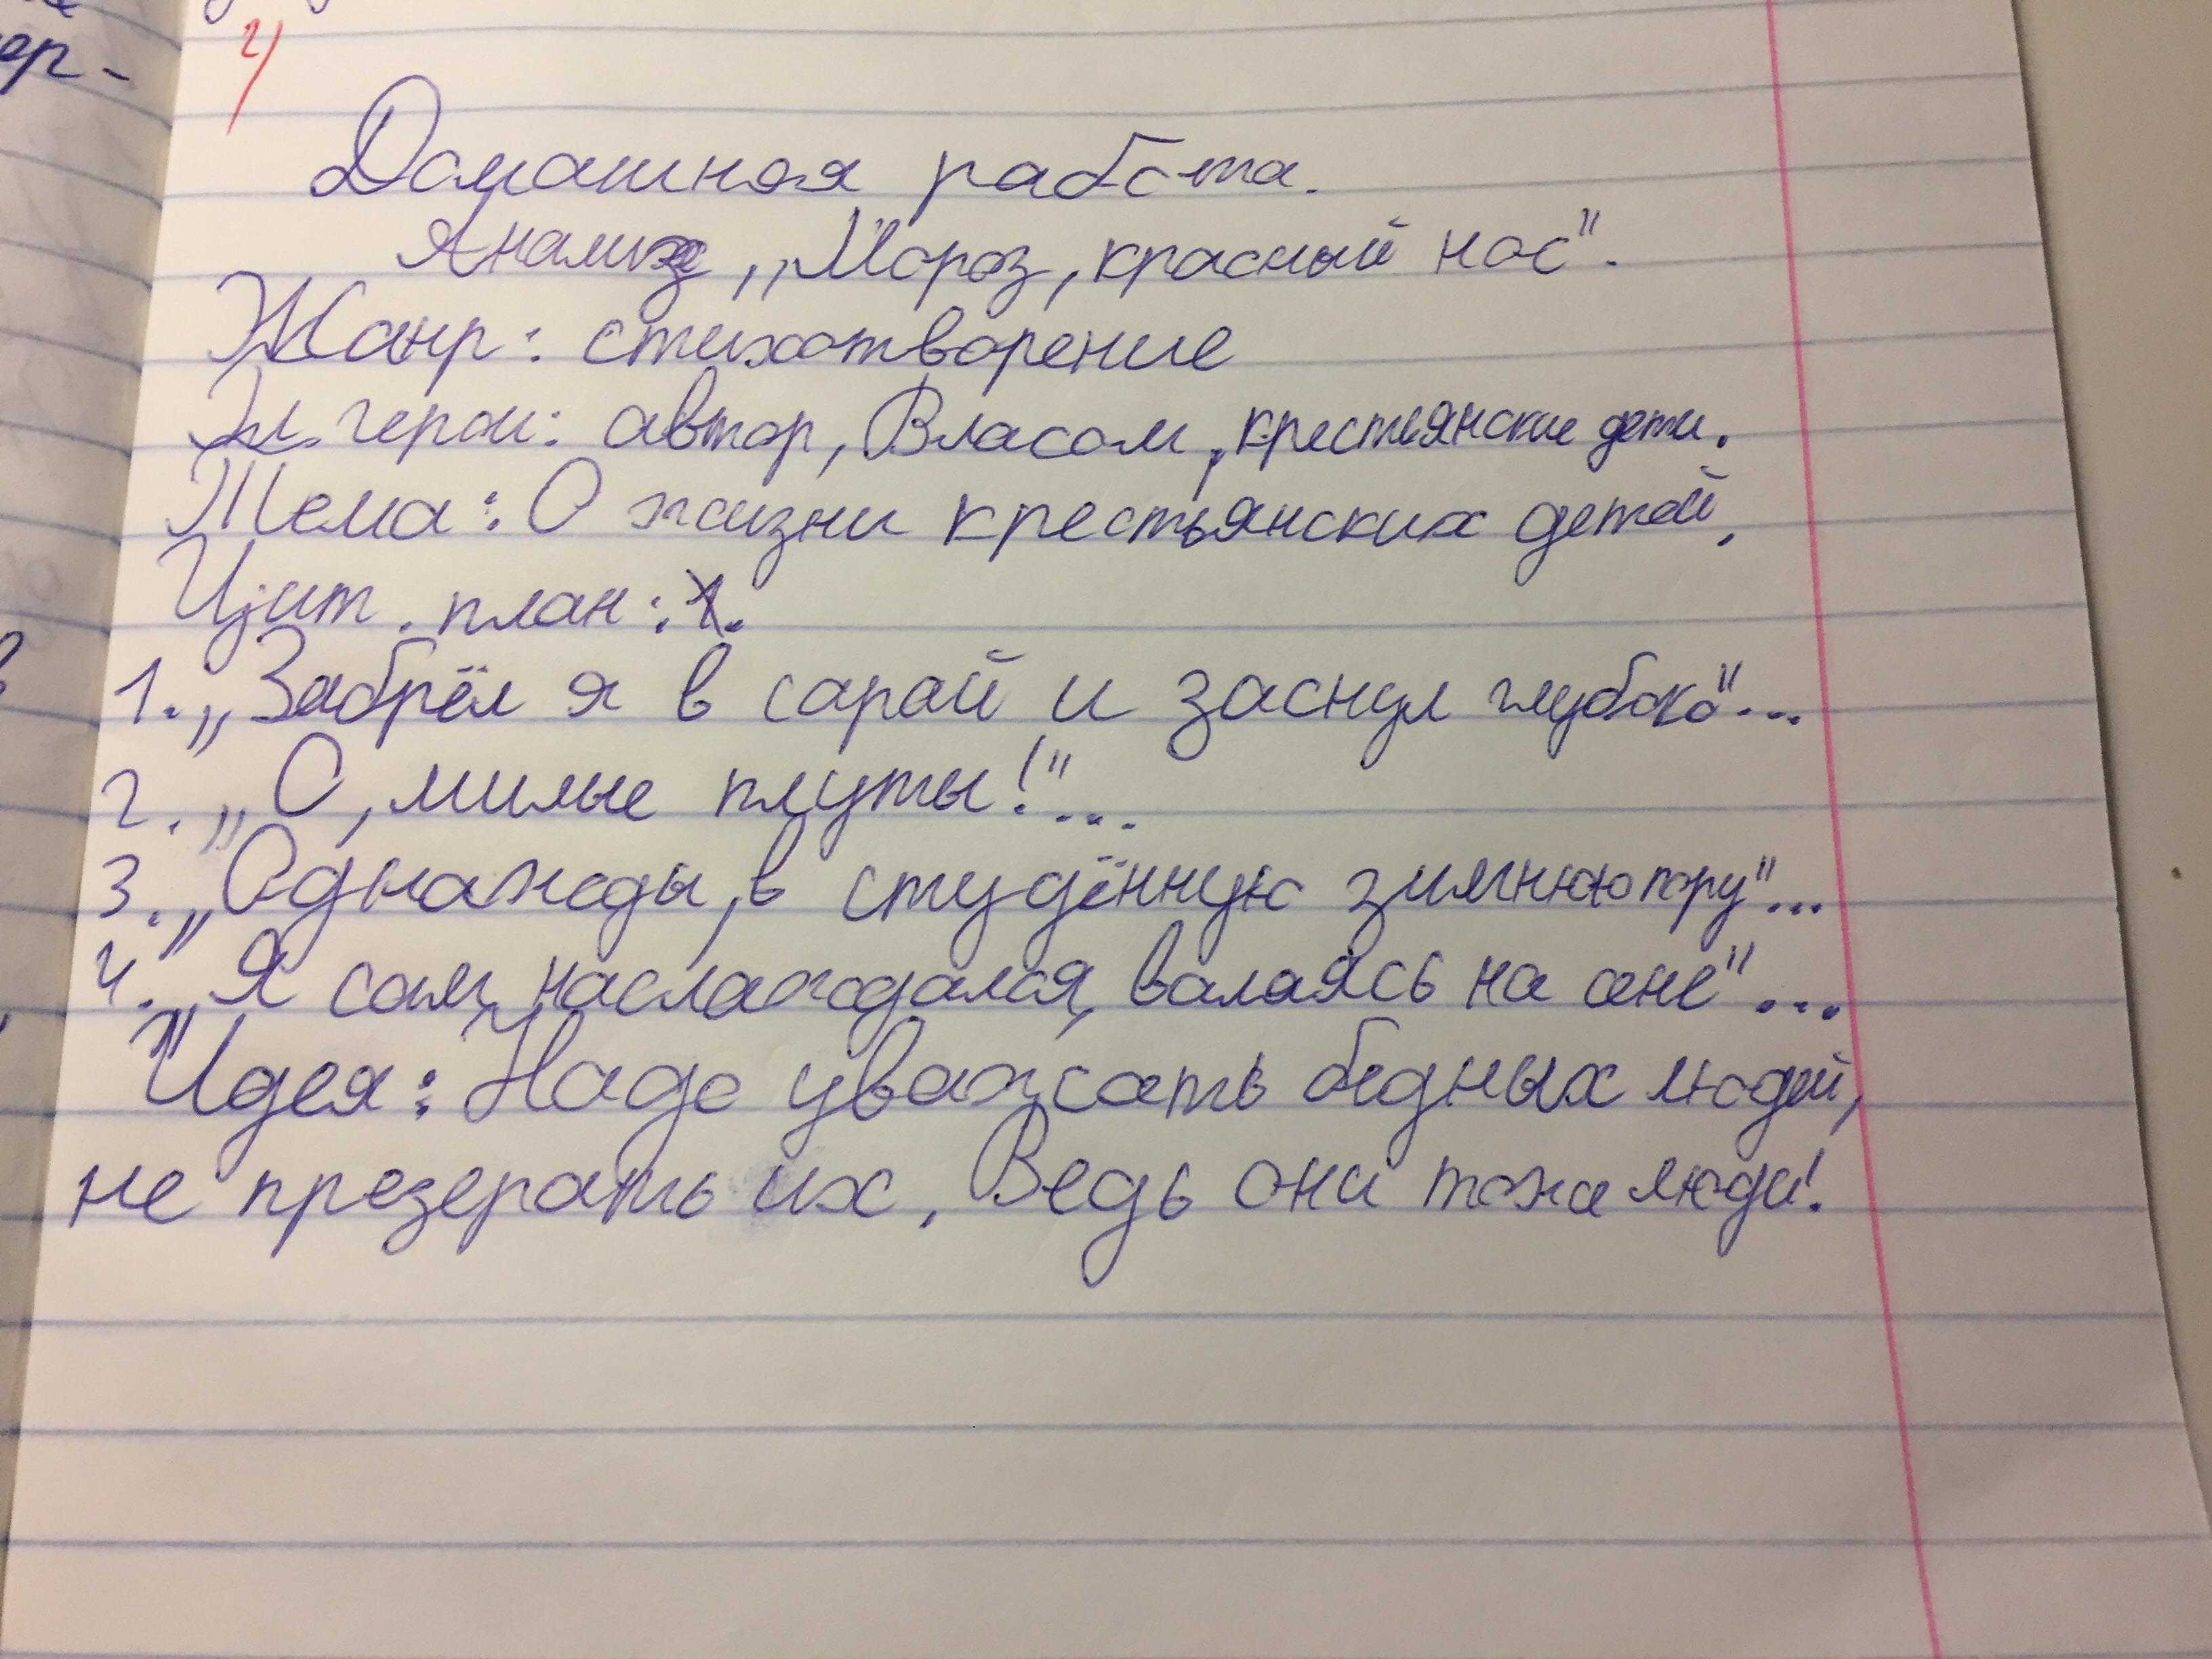 ер-
Домашная работа.
Анализ „Мороз, красный нос".
Жанр: стихотворение
Гл. герои: автор, Власом, крестьянские дети.
Тема: О жизни крестьянских детей,
Цит. план:
1. „Забрёл я в сарай и заснул глубоко"...
2. „О, милые плуты!"...
3. „Однажды, в студённую зимнюю пору"...
4. „Я сам наслаждался, валаясь на сене"...
Идея: Надо уважать бедных людей,
не презерать их, Ведь они тоже люди!